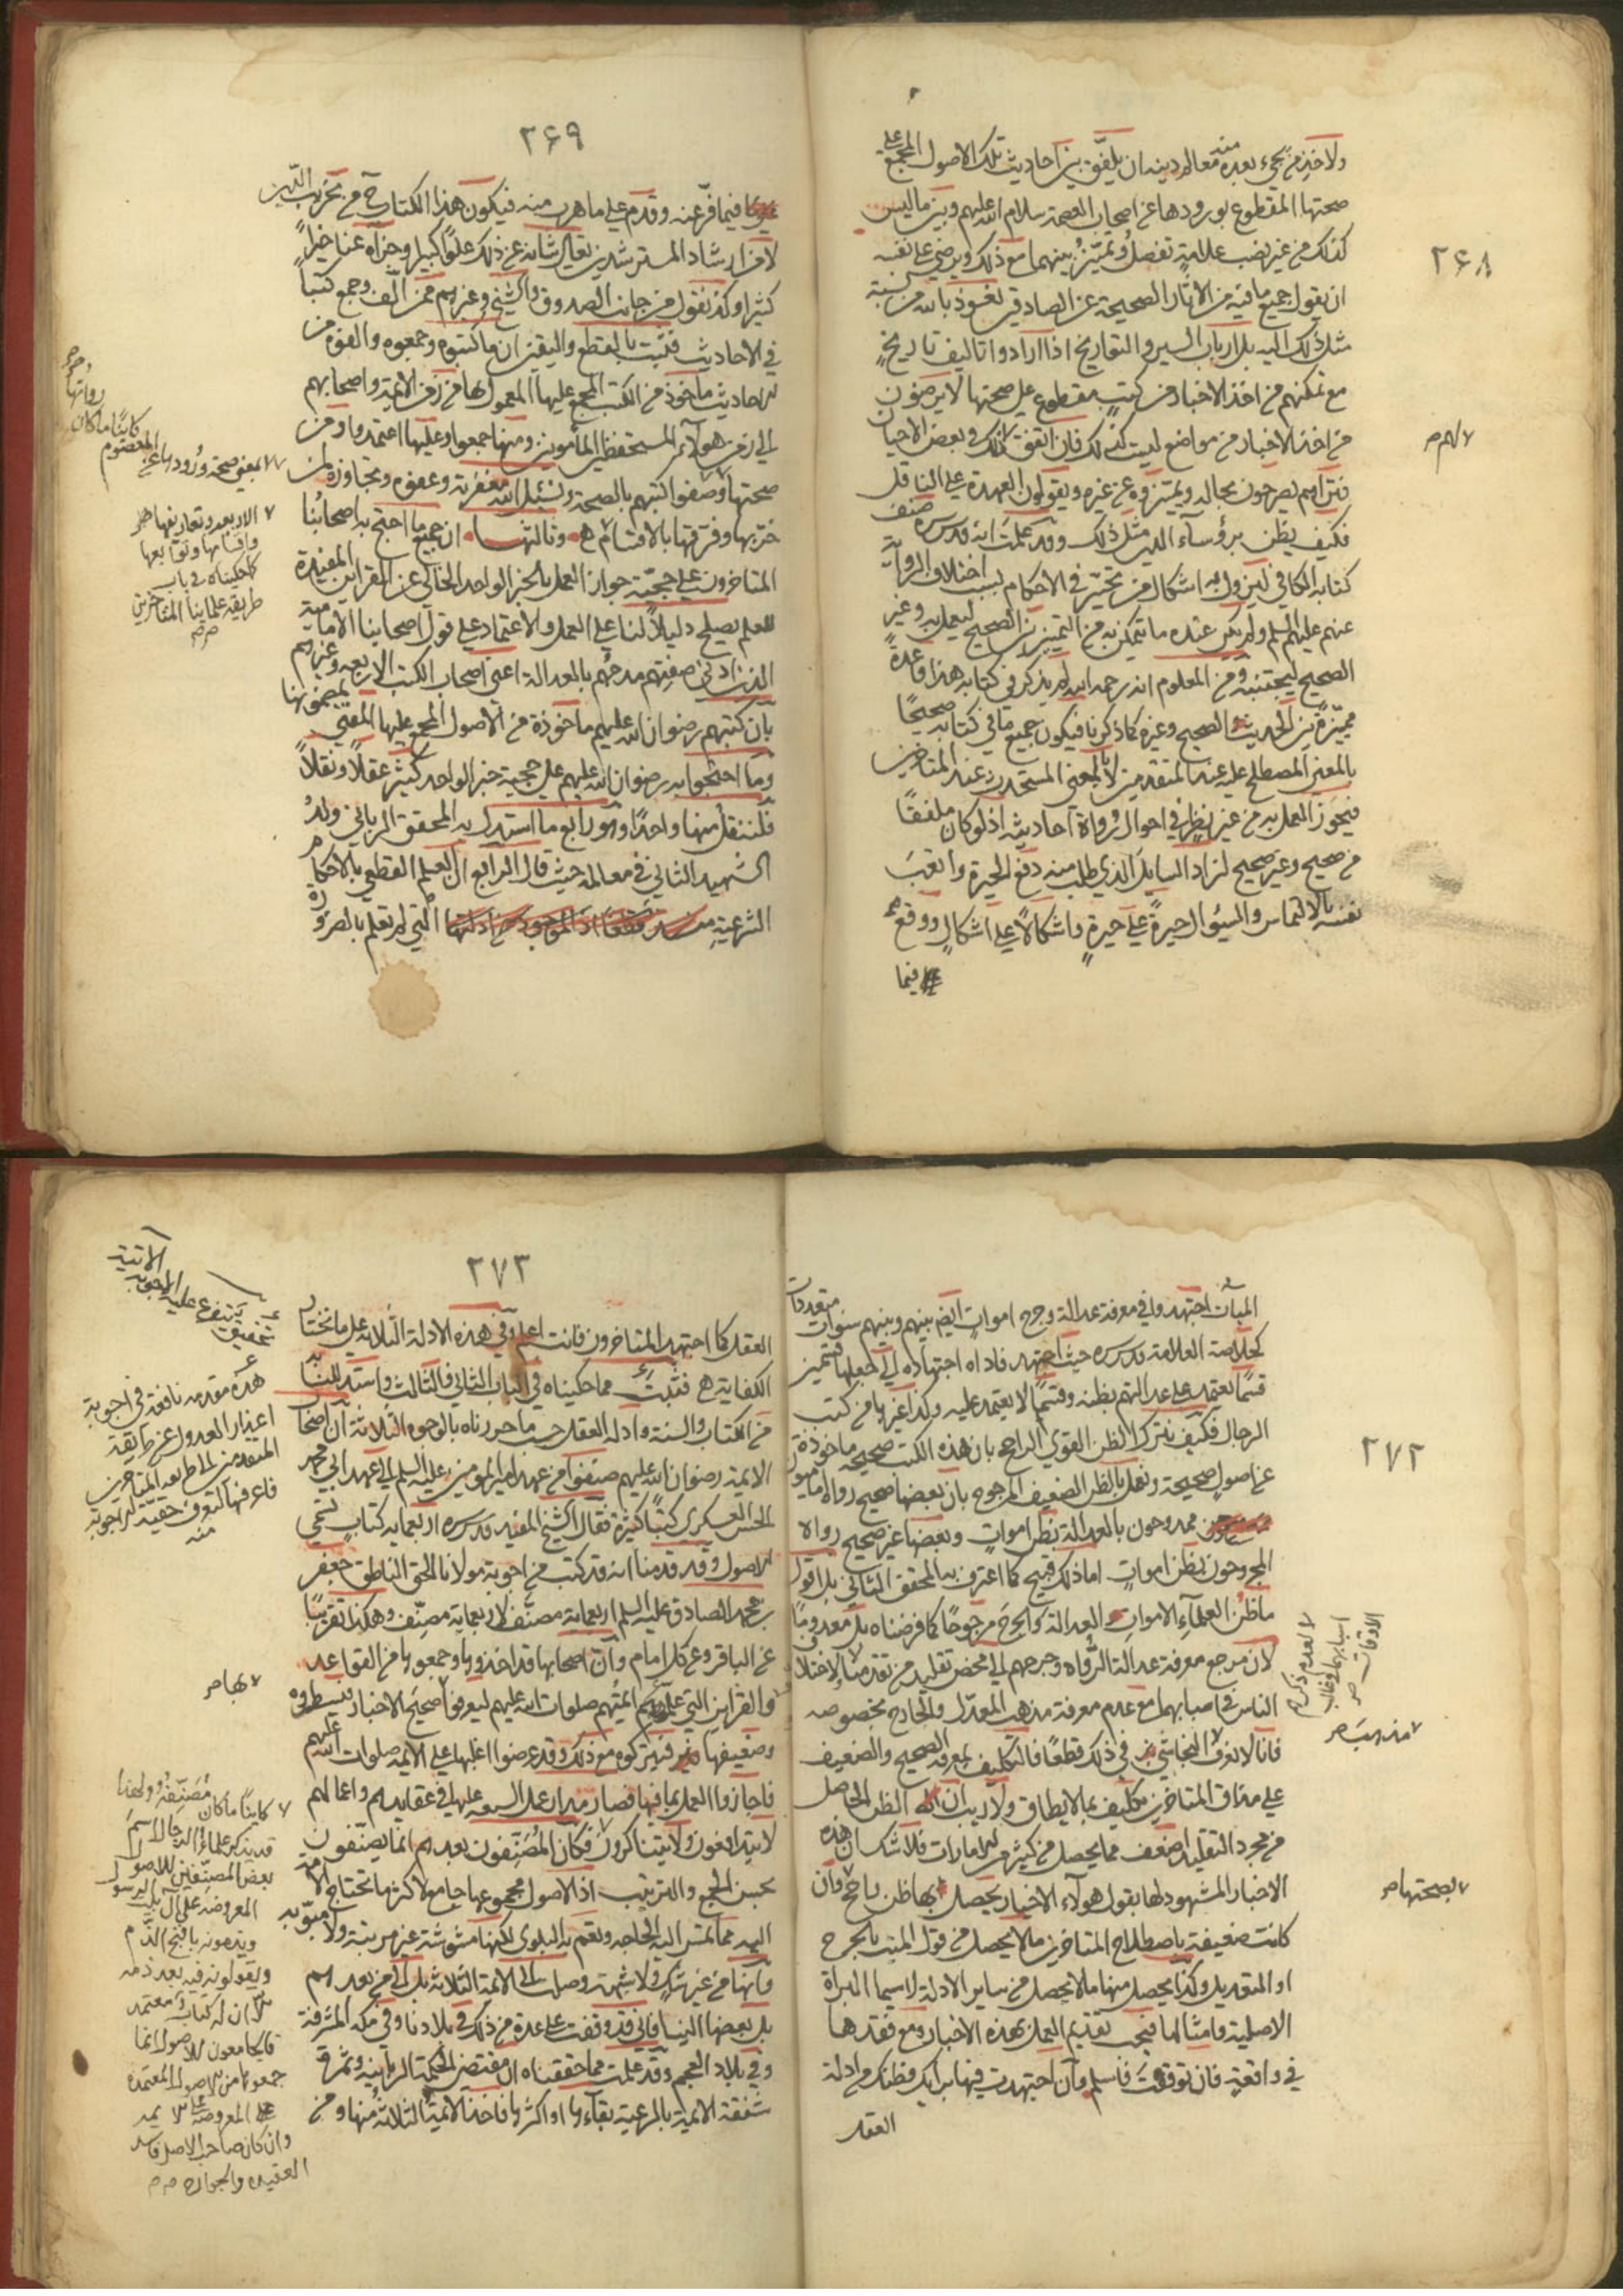 ٢۶٨
ولاخذ من يجيء بعده منه معالم دينه ان يلفّق بين احاديث تلك الاصول المجمع على
صحتها المقطوع بورودها عن اصحاب العصمة سلام الله عليهم وبين ما ليس
كذلك من غير نصب علامة تفصل وتميّز بينهما مع ذلك ويرضى على نفسه
ان يقول جميع ما فيه من الاثار الصحيحة عن الصادقين نعوذ بالله من نسبة
مثل ذلك اليه بل ارباب السير والتواريخ اذا ارادوا تاليف تاريخ
مع تمكنهم من اخذ الاخبار من كتب مقطوع على صحتها لا يرضون
من اخذ الاخبار من مواضع ليست كذلك فان اتفق ذلك في بعض الاحيان
فتراهم يصرحون بحاله ويميّزوه عن غيره ويقولون العهدة على الناقل
فكيف يظن برؤساء الدين مثل ذلك وقد علمت انه قدس سره صنف
كتابه الكافي ليزول به اشكال من تحيّر في الاحكام بسبب اختلاف الرواية
عنهم عليهم السلم ولم يكن عنده ما يتمكن به من التمييز بين الصحيح ليعمل به وغير
الصحيح ليجتنبه ومن المعلوم انه رحمه الله لم يذكر في كتابه هذا قاعدة
مميّزة بين الحديث الصحيح وغيره كما ذكرنا فيكون جميع ما في كتابه صحيحًا
بالمعنى المصطلح عليه عند المتقدمين لا بالمعنى المستحدث عند المتاخرين
فيجوز العمل به من غير نظر في احوال رواة احاديثه اذ لو كان ملفقًا
من صحيح وغير صحيح لزاد السايل الذي طلب منه دفع الحيرة واتعب
نفسه بالالتماس والسؤال حيرةً على حيرةٍ واشكالًا على اشكالٍ ووقع
فيما
لهم صح
٢۶٩
فيما فرّ عنه وقدم على ما هرب منه فيكون هذا الكتاب ح من تخريب الدّين
لا من ارشاد المسترشدين تعالى شانه عن ذلك علوًّا كبيرا وجزاه عنا خيرًا
كثيرا وكذا نقول من جانب الصدوق والشيخ وغيرهم ممن الّف وجمع كتبًا
في الاحاديث فثبت بالقطع واليقين ان ما كتبوه وجمعوه والفوه من
الاحاديث ماخوذ من الكتب المجمع عليها المعمول بها من زمن الائمة واصحابهم
الى زمن هؤلآء المستحفظين المأمونين ومنها جمعوا وعليها اعتمدوا ومن
صحتها وصفوا كتبهم بالصحة ونسئل الله مغفرته وعفوه وتجاوزه لمن
خرّبها وفرقها بالاقسام وثالثها ان جميع ما احتج به اصحابنا
المتاخرون على حجيّة جواز العمل بالخبر الواحد الخالي عن القراين المفيدة
للعلم يصلح دليلًا لنا على العمل والاعتماد على قول اصحابنا الامامية
الذين ادنى صفتهم مدحهم بالعدالة اعني اصحاب الكتب الاربعه وغيرهم
بان كتبهم رضوان الله عليهم ماخوذة من الاصول المجمع عليها المعتنى بمضمونها
وما احتجوا به رضوان الله عليهم على حجية خبر الواحد كثير عقلًا ونقلًا
فلننقل منها واحدًا وهو رابع ما استدل به المحقق الرباني ولد
الشهيد الثاني في معالمه حيث قال الرابع ان العلم القطعي بالاحكام
الشرعية التي لم تعلم بالضرورة
رواتها
كاينًا ما كان
لا بمعنى صحة ورودها عن المعصوم
الاربعه وتعاريفها
واقسامها وتوابعها
كما حكيناه في باب
طريقه علماينا المتاخرين
٢٧٢
المبآت اجتهدوا في معرفة عدالة وجرح اموات ايضا بينهم وبينهم سنوات متعددات
كخلاصة العلامة قدس سره حيث اجتهد فاداه اجتهاده الى جعلها قسمين
قسمًا يعتمد على عدالتهم بظنه وقسمًا لا يعتمد عليه وكذا غيرها من كتب
الرجال فكيف نترك الظن القوي الراجح بان هذه الكتب صحيحه ماخوذة
عن اصول صحيحة ونعمل بالظن الضعيف المرجوح بان بعضها صحيح رواه اماميون
ممدوحون بالعدالة بظن اموات وبعضها غير صحيح رواه
المجروحون بظن اموات اما ذلك قبيح كما اعترف به المحقق الثاني بل اقول
ما ظن العلمآء الاموات العدالة والجرح مرجوحًا كما فرضناه بل معدومًا
لان مرجع معرفة عدالة الرواه وجرحهم الى محض تقليد من تقدمنا لاختلاف
الناس في اسبابهما مع عدم معرفة مذهب المعدّل والجارح بخصوصه
فانا لا نعرف النجاشي في ذلك قطعًا فالتكليف بمعرفة الصحيح والضعيف
على مذاق المتاخرين تكليف بما لا يطاق ولا ريب ان الظن الحاصل
من مجرد التقليد اضعف مما يحصل من كثير من الامارات فلا شك ان هذه
الاخبار المشهود لها بقول هولآء الاخيار يحصل بها ظن راجح وان
كانت ضعيفة باصطلاح المتاخرين ما لا يحصل من قول الميت بالجرح
او التعديل وكذا يحصل منها ما لا يحصل من ساير الادلة لا سيما البراة
الاصلية وامثالها فيجب تقديم العمل بهذه الاخبار ومع فقدها
في واقعة فان توقفت فاسلم وان اجتهدت فيها برايك وظنك من ادلة
العقل
لعدم ذكرهم
اسبابهما في غالب
الاوقات صح
مذهب صح
بصحتها صح
٢٧٣
العقل كما اجتهد المتاخرون فانت اعلم وفي هذه الادلة الثلاثة على ما نختار
الكفاية فثبت مما حكيناه في الباب الثاني فالثالث واستدللنا به
من الكتاب والسنة وادلة العقل حسب ما حررناه بالوجوه الثلاثة ان اصحاب
الايمة رضوان الله عليهم صنفوا من عهد امير المومنين عليه السلم الى عهد ابي محمد
الحسن العسكري كتبًا كثيرة فقال الشيخ المفيد قدس سره اربعمايه كتاب تسمى
الاصول وقد قدمنا انه قد كتب من اجوبة مولانا المحق الناطق جعفر
بن محمد الصادق عليه السلم اربعماية مصنّف لاربعماية مصنِّف وهكذا تقريبًا
عن الباقر وعن كل امام وان اصحابها قد اخذوها وجمعوها من القواعد
والقراين التي علمهم ائمتهم صلوات الله عليهم ليعرفوا صحيح الاخبار فيسطروه
وضعيفها فيتركوه مع ذلك وقد عرضوا اغلبها على الايمة صلوات الله عليهم
فاجازوا العمل بما فيها فصار مدار عمل الشيعه عليها في عقايدهم واعمالهم
لا يتدافعون ولا يتناكرون فكان المُصَنِّفون بعدهم انما يصنّفون
بحسن الجمع والترتيب اذ الاصول مجموعها جامع لاكثر ما تحتاج الامة
اليه مما تمس اليه الحاجه وتعم به البلوى لكنها مشوشة غير مرتبة ولا مبوّبه
وانها من غير شك ولا شبهة وصلت الى الائمة الثلاثة بل الى من بعدهم
بل بعضها الينا فاني قد وقفت على عدة من ذلك في بلادنا وفي مكه المشرفة
وفي بلاد العجم وقد علمت مما حققناه ان مقتضى الحكمة الربانيه وثمرة
شفقة الائمة بالرعية بقآءها او اكثرها فاخذ الائمة الثلاثة منها ومن
يتفرع عليه الاجوبه
الآتية
هذه مقدمه نافعة في اجوبة
اعتذار العدول عن طريقة
المتقدمين الى طريقة المتاخرين
فاعرفها لتعرف حقيقة الاجوبة
منه
بها صح
كاينًا ما كان مُصَنِّفه ولهذا
قد يذكر علماء الرجال اسم
بعض المصنفين للاصول
المعروضه على آل الرسول
ويذمونه باقبح الذم
ويقولون فيه بعد ذمه
الا ان له كتاب معتمد
فالجامعون للاصول انما
جمعوها من الاصول المعتمده
المعروضه
وان كان صاحب الاصل فاسد
العقيده والجوارح